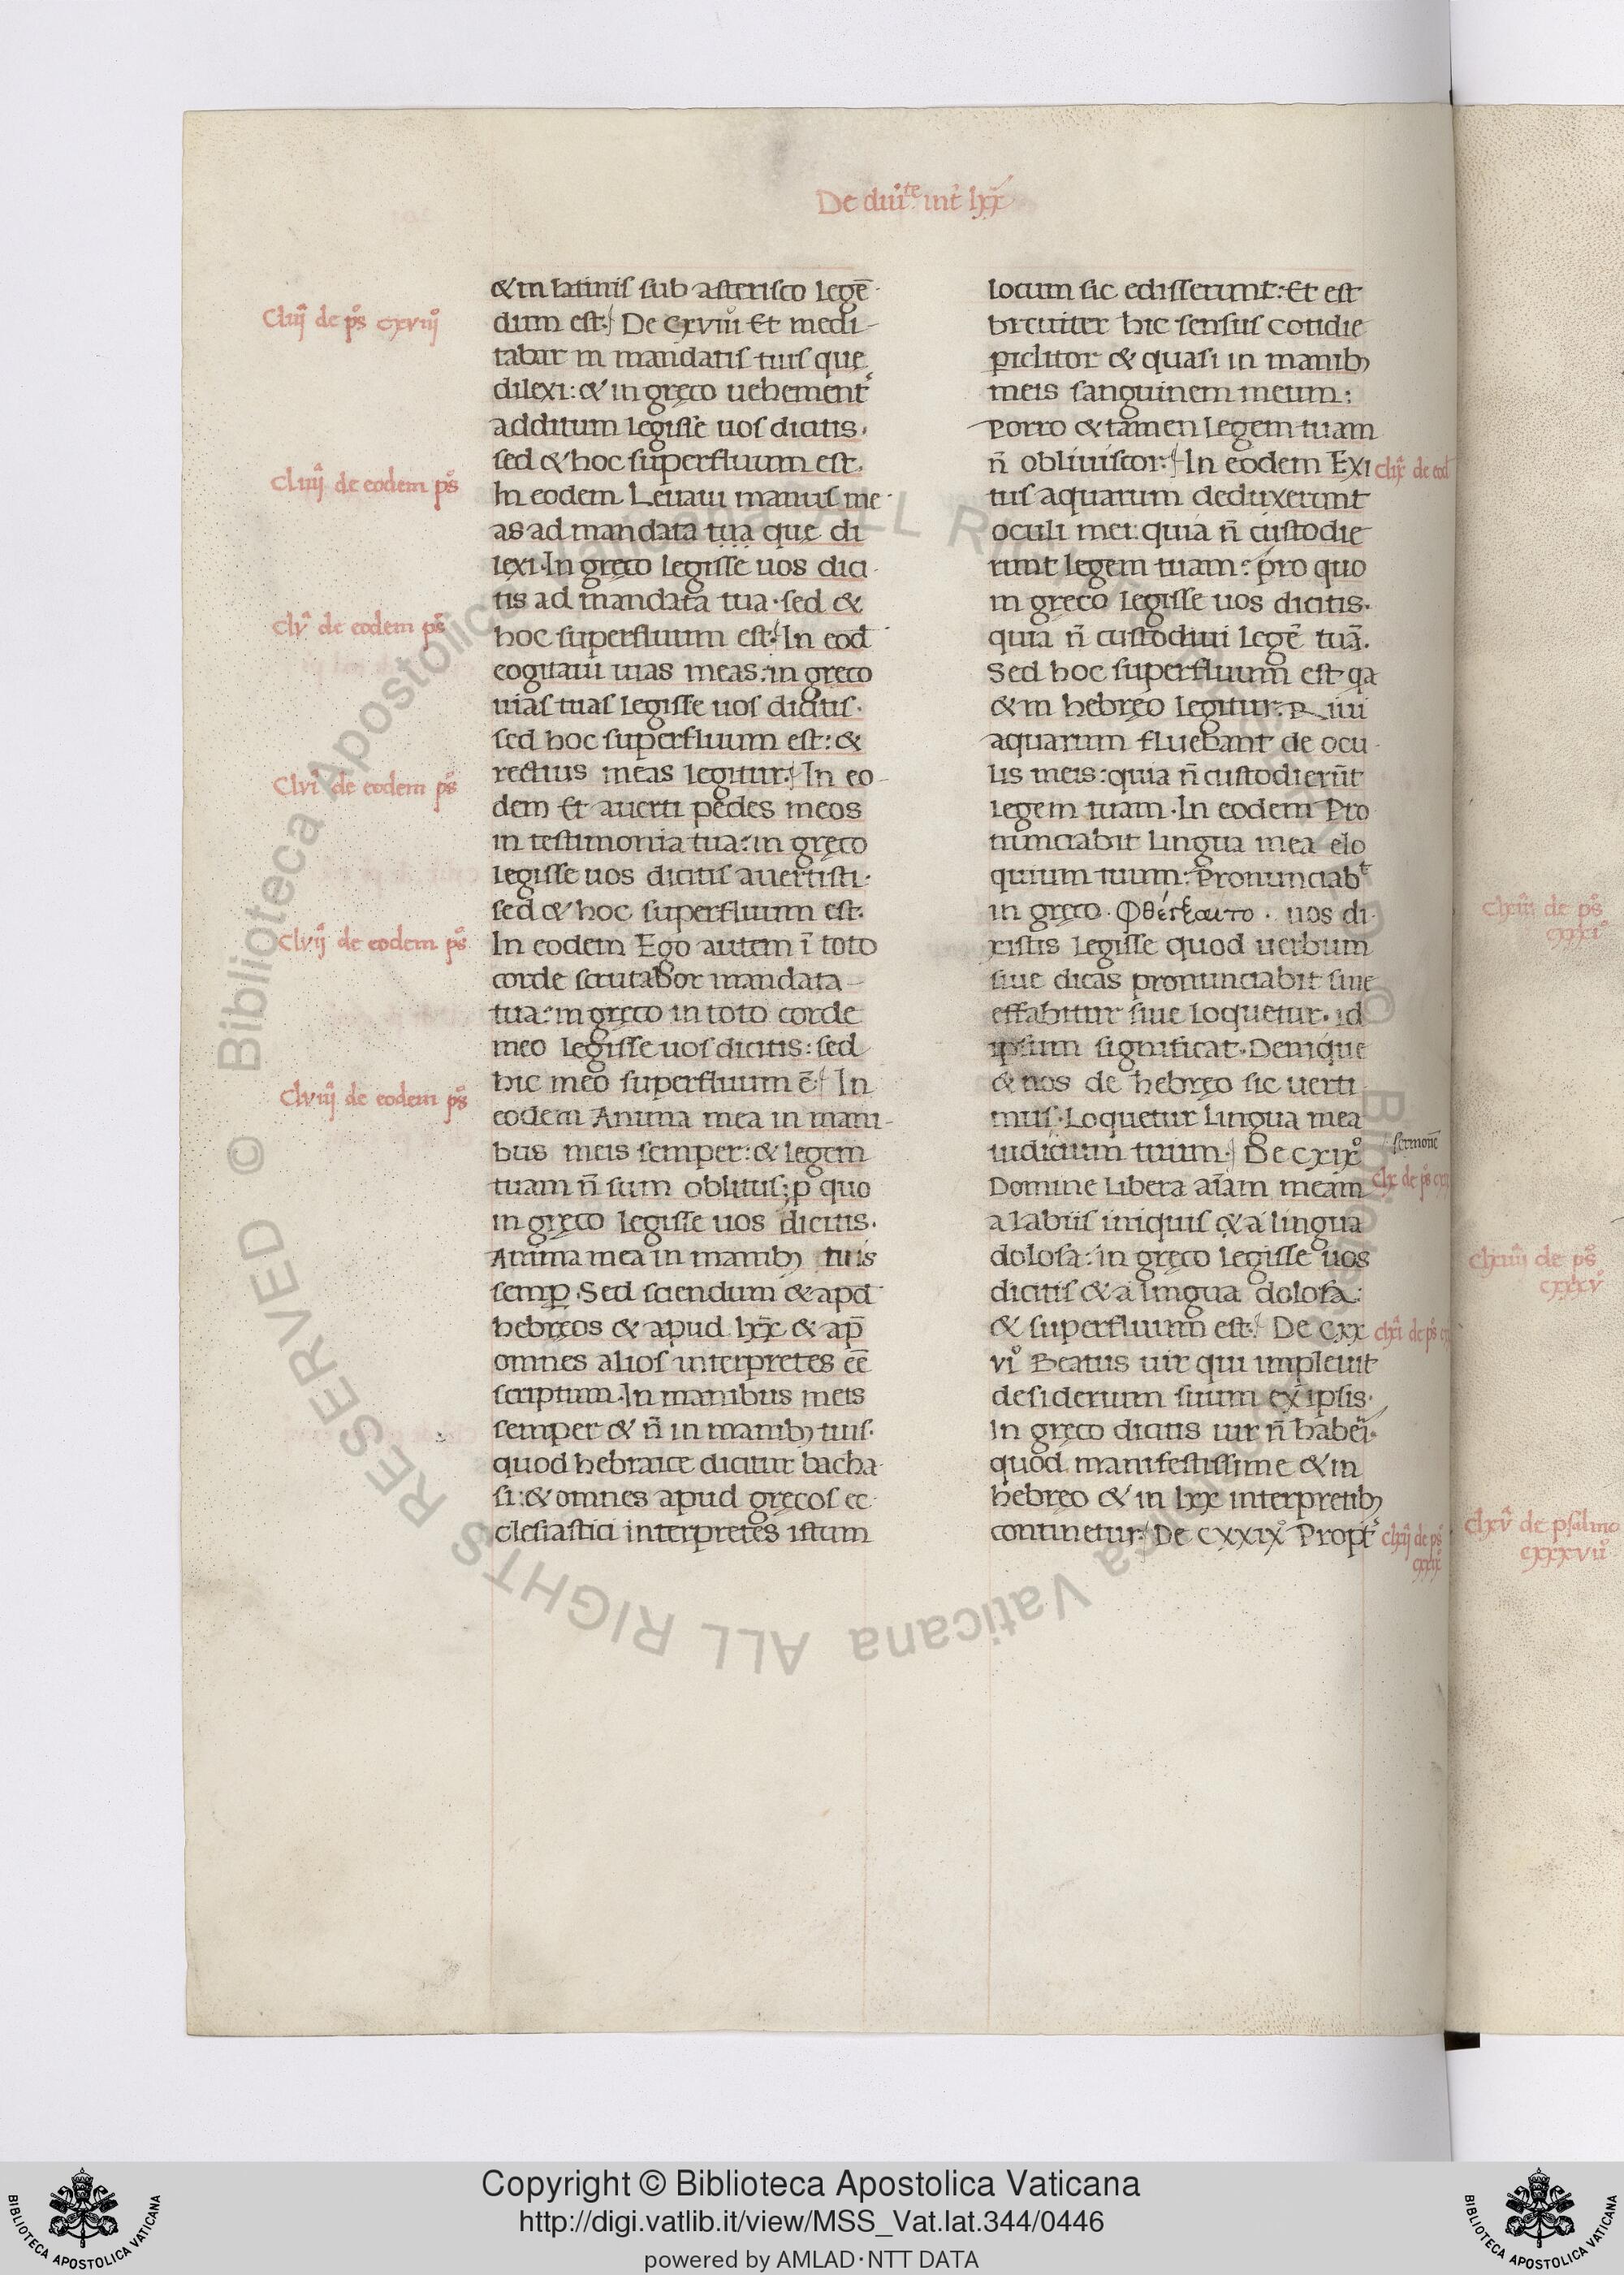 De diu̅i̅te int̅ lxx̅
&in latinis sub asterisco legē-
dum est. De cxviii Et medi-
tabar in mandatis tuis que
dilexi: & in gręco uehement̉
additum legisse uos dicitis.
sed & hoc superfluum est.
In eodem Leuaui manus me-
as ad mandata tua que di
lexi. In gręco legisse uos dici-
tis ad mandata tua. sed &
hoc superfluum est. In eod̅
cogitaui uias meas: in gręco
uias tuas legisse uos dicitis.
sed hoc superfluum est: &
rectius meas legitur. In eo-
dem Et auerti pedes meos
in testimonia tua: in gręco
legisse uos dicitis auertisti.
sed & hoc superfluum est.
In eodem Ego autem ī toto
corde scrutabor mandata
tua: in gręco in toto corde
meo legisse uos dicitis: sed
hic meo superfluum ē. In
eodem Anima mea in mani-
bus meis semper: & legem
tuam n̄ sum oblitus: p quo
in gręco legisse uos dicitis.
Anima mea in manibꝫ tuis
semꝑ. Sed sciendum & apd̅
hebręos & apud lxx̅ & ap̅
omnes alios interpretes ēē
scriptum. In manibus meis
semper & n̄ in manibꝫ tuis.
quod hebraice dicitur bacha-
fi: & omnes apud gręcos ec-
clesiastici interpretes istum
locum sic edisserunt: Et est
breuiter hic sensus cotidie
ꝑiclitor & quasi in manibꝫ
meis sanguinem meum:
porto & tamen legem tuam
n̄ obliuiscor: In eodem Exi
tus aquarum deduxerunt
oculi mei: quia n̄ custodie
runt legem tuam: pro quo
in gręco legisse uos dicitis.
quia n̄ custodiui legē tuā.
Sed hoc superfluum est qa
& in hebręo legitur. Riui
aquarum fluebant de ocu-
lis meis: quia n̄ custodierūt
legem tuam. In eodem Pro
nunciabit lingua mea elo
quium tuum: Pronunciabt
in gręco. Φθέγξαιτο. uos di-
xistis legisse quod uerbum
siue dicas pronunciabit siue
effabitur siue loquetur. id
ipsum significat. Denique
& nos de hebręo sic uerti
mus. Loquetur lingua mea
iudicium tuum. De cxixo
Domine libera aīam meam
a labiis iniquis & a lingua
dolosa: in gręco legisse uos
dicitis & a lingua dolosa:
& superfluum est. De cxx
vio Beatus uir qui impleuit
desiderium suum ex ipsis.
In gręco dicitis uir n̄ haberi.
quod manifestissime & in
hebręo & in lxx interpretibꝫ
continetur. De cxxixo Propt̉
cliii de ps̅ cxviiio
cliiii de eodem ps̅
clv de eodem ps̅
clvi de eodem ps̅
clvii de eodem ps̅
clviii de eodem ps̅
clix de eod
sermonē
clx de ps̅
clxi de ps̅
clxii de ps̅
cxxix
clxiii de ps̅
cxxxi
clxiiii de ps̅
cxxxv
clxv de psalmo
cxxxvii
Copyright © Biblioteca Apostolica Vaticana
http://digi.vatlib.it/view/MSS_Vat.lat.344/0446
powered by AMLAD·NTT DATA
BIBLIOTECA APOSTOLICA VATICANA
BIBLIOTECA APOSTOLICA VATICANA
© Biblioteca Apostolica Vaticana ALL RIGHTS RESERVED
© Biblioteca Apostolica Vaticana ALL RIGHTS RESERVED